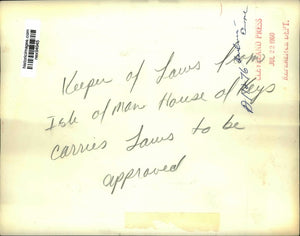 Keeper of Laws from
Isle of Man House of Keys
carries Laws to be
approved
PRESS
JUL 22 1960
REFERENCE DEPT.
historicimages.com